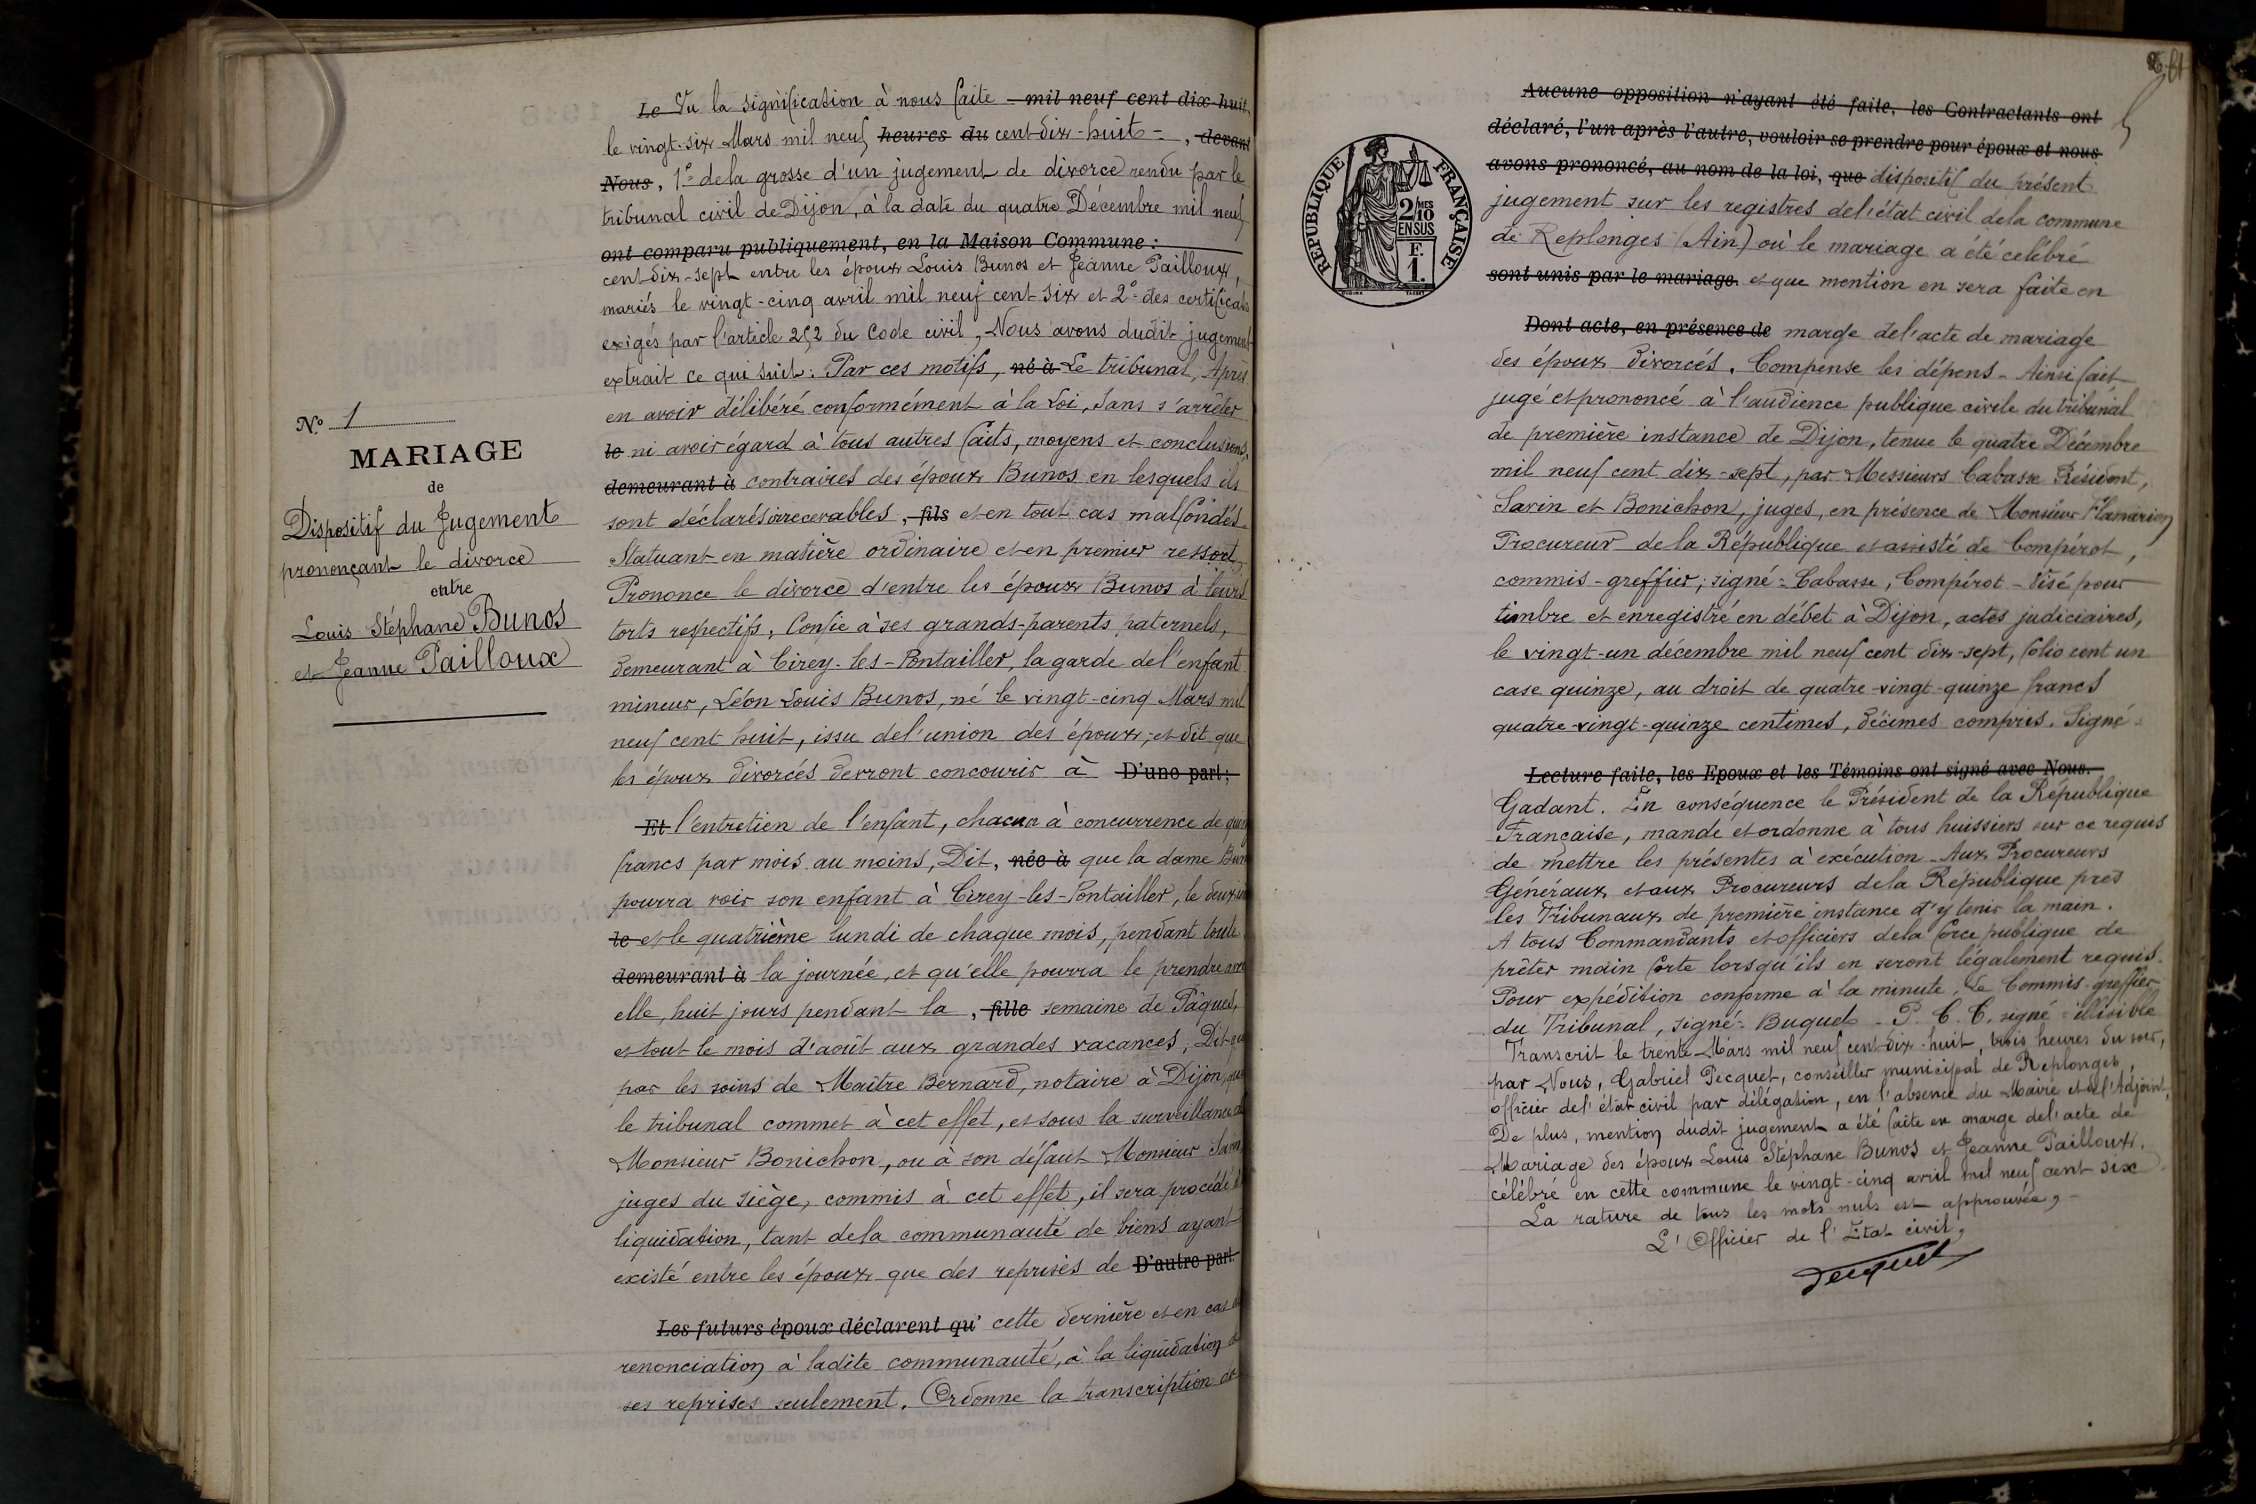 N.º 1
MARIAGE
de
Dispositif du Jugement
prononçant le divorce
entre
Louis Stéphane Bunos
et Jeanne Pailloux
Le Vu la signification à nous faite mil neuf cent dix-huit
le vingt-six Mars mil neuf heures du cent dix-huit -, devant
Nous, 1º de la grosse d'un jugement de divorce rendu par le
tribunal civil de Dijon, à la date du quatre Décembre mil neuf
ont comparu publiquement, en la Maison Commune :
cent dix-sept entre les époux Louis Bunos et Jeanne Pailloux,
mariés le vingt-cinq avril mil neuf cent six et 2º des certificats
exigés par l'article 252 du Code civil, Nous avons dudit jugement
extrait ce qui suit: Par ces motifs, né à Le tribunal, Après
en avoir délibéré conformément à la Loi, sans s'arrêter
le ni avoir égard à tous autres faits, moyens et conclusions,
demeurant à contraires des époux Bunos en lesquels ils
sont déclarés irrecevables, fils et en tout cas mal fondés
Statuant en matière ordinaire et en premier ressort,
Prononce le divorce d'entre les époux Bunos à leurs
torts respectifs, Confie à ses grands-parents paternels,
demeurant à Cirey-les-Pontailler, la garde de l'enfant
mineur, Léon Louis Bunos, né le vingt-cinq Mars mil
neuf cent huit, issu de l'union des époux, et dit que
les époux divorcés devront concourir à D'une part;
Et l'entretien de l'enfant, chacun à concurrence de
francs par mois au moins, Dit, née à que la dame
pourra voir son enfant à Cirey-les-Pontailler, le
le et le quatrième lundi de chaque mois, pendant toute
demeurant à la journée, et qu'elle pourra le prendre avec
elle, huit jours pendant la, fille semaine de Pâques,
et tout le mois d'août aux grandes vacances; Dit que
par les soins de Maître Bernard, notaire à Dijon, que
le tribunal commet à cet effet, et sous la surveillance de
Monsieur Bonichon, ou à son défaut Monsieur Sarin
juges du siège, commis à cet effet, il sera procédé à
liquidation, tant de la communauté de biens ayant
existé entre les époux que des reprises de D'autre part.
Les futurs époux déclarent qu' cette dernière et en cas de
renonciation à ladite communauté, à la liquidation de
ses reprises seulement. Ordonne la transcription du
RÉPUBLIQUE FRANÇAISE
2/10 MES
EN SUS
F.
1.
Aucune opposition n'ayant été faite, les Contractants ont
déclaré, l'un après l'autre, vouloir se prendre pour époux et nous
avons prononcé, au nom de la loi, que dispositif du présent
jugement sur les registres de l'état civil de la commune
de Replonges (Ain) où le mariage a été célébré
sont unis par le mariage et que mention en sera faite en
Dont acte, en présence de marge de l'acte de mariage
des époux divorcés. Compense les dépens - Ainsi fait
jugé et prononcé à l'audience publique civile du tribunal
de première instance de Dijon, tenue le quatre Décembre
mil neuf cent dix-sept, par Messieurs Cabasse Président,
Sarin et Bonichon, juges, en présence de Monsieur Flamarion
Procureur de la République et assisté de Compérot,
commis-greffier; signé: Cabasse, Compérot - Visé pour
timbre et enregistré en débet à Dijon, actes judiciaires,
le vingt-un décembre mil neuf cent dix-sept, folio cent un
case quinze, au droit de quatre-vingt-quinze francs
quatre-vingt-quinze centimes, décimes compris. Signé:
Lecture faite, les Epoux et les Témoins ont signé avec Nous.
Gadant. En conséquence le Président de la République
Française, mande et ordonne à tous huissiers sur ce requis
de mettre les présentes à exécution - Aux Procureurs
Généraux et aux Procureurs de la République près
les Tribunaux de première instance d'y tenir la main.
A tous Commandants et officiers de la force publique de
prêter main forte lorsqu'ils en seront légalement requis.
Pour expédition conforme à la minute, Le Commis-greffier
du Tribunal, signé: Buguet - P. C. C. signé: illisible
Transcrit le trente Mars mil neuf cent dix-huit, trois heures du soir,
par Nous, Gabriel Pecquet, conseiller municipal de Replonges,
officier de l'état civil par délégation, en l'absence du Maire et de l'Adjoint,
De plus, mention dudit jugement a été faite en marge de l'acte de
Mariage des époux Louis Stéphane Bunos et Jeanne Pailloux,
célébré en cette commune le vingt-cinq avril mil neuf cent six
La rature de tous les mots nuls est approuvée,
L'Officier de l'Etat civil,
Pecquet